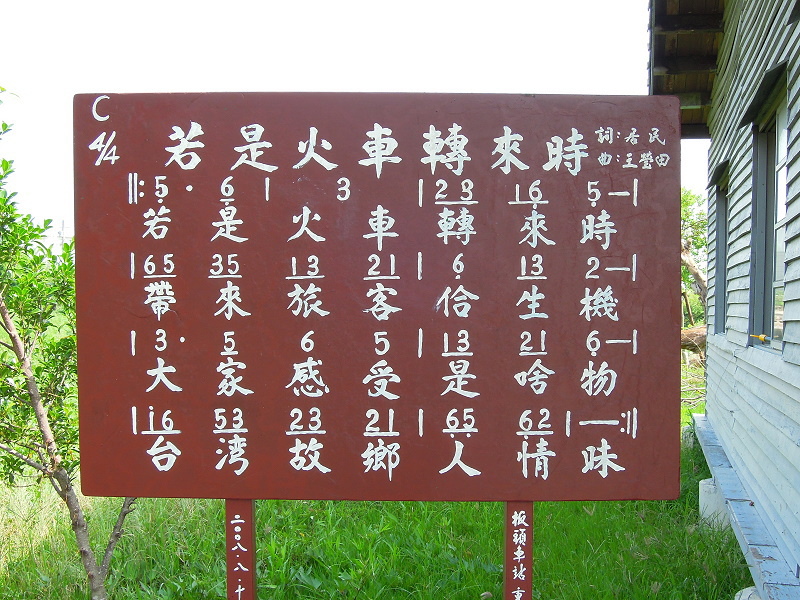 C
4/4
若是火車轉來時
詞：居民
曲：王瑩田
‖: 5 · 6 1 3 | 23 16 5 — |
若是火車轉來時
| 65 35 13 21 | 6 13 2 — |
帶來旅客佮生機
| 3 · 5 6 5 | 13 21 6 — |
大家感受是啥物
| i6 53 23 21 | 65 62 | — :‖
台湾故鄉人情味
二〇〇八.八.十
板頭車站